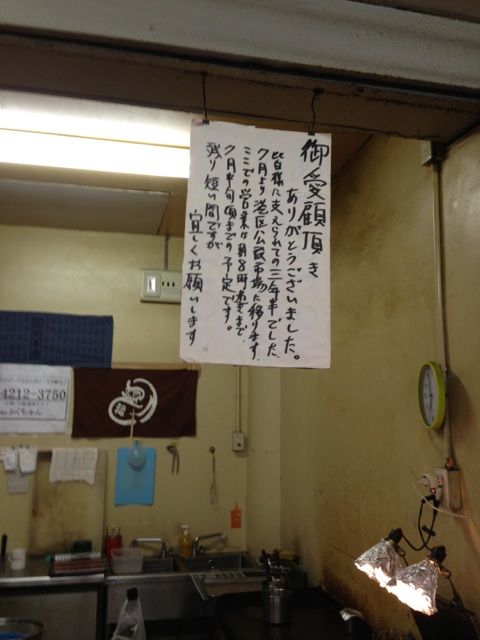 御愛顧頂き
ありがとうございました。
皆様に支えられての三年半でした。
7月より港区公設市場に移ります。
ここでの営業は朝8時
7月中旬頃までの予定です。
残り短い間ですが
宜しくお願いします
4212-3750